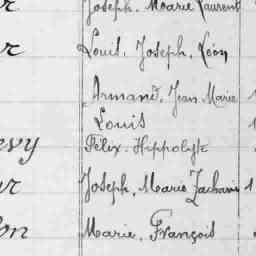 Joseph, Marie Laurent
Louis, Joseph, Léon
Armand, Jean Marie
Louis
Félix Hippolyte
Joseph, Marie Zacharie
Marie, François